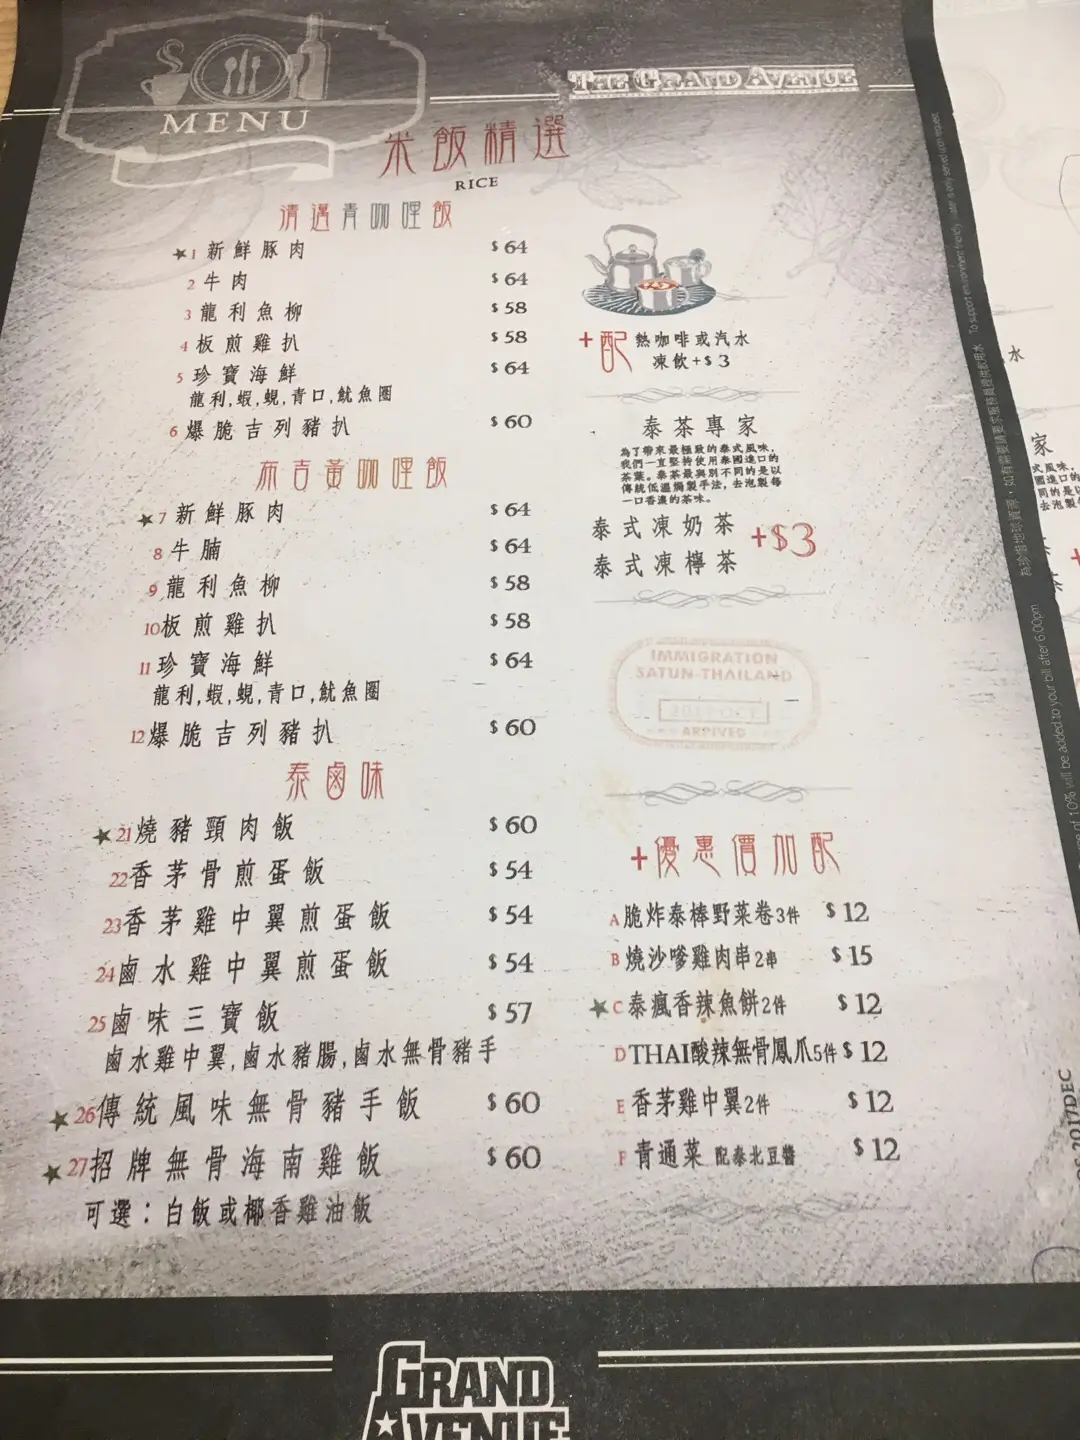 MENU
THE GRAND AVENUE
米飯精選
RICE
清邁青咖哩飯
★1 新鮮豚肉 $64
2 牛肉 $64
3 龍利魚柳 $58
4 板煎雞扒 $58
5 珍寶海鮮 $64
龍利,蝦,蜆,青口,魷魚圈
6 爆脆吉列豬扒 $60
布吉黃咖哩飯
★7 新鮮豚肉 $64
8 牛腩 $64
9 龍利魚柳 $58
10 板煎雞扒 $58
11 珍寶海鮮 $64
龍利,蝦,蜆,青口,魷魚圈
12 爆脆吉列豬扒 $60
泰鹵味
★21 燒豬頸肉飯 $60
22 香茅骨煎蛋飯 $54
23 香茅雞中翼煎蛋飯 $54
24 鹵水雞中翼煎蛋飯 $54
25 鹵味三寶飯 $57
鹵水雞中翼,鹵水豬腸,鹵水無骨豬手
★26 傳統風味無骨豬手飯 $60
★27 招牌無骨海南雞飯 $60
可選：白飯或椰香雞油飯
+配 熱咖啡或汽水
凍飲+$3
泰茶專家
為了帶來最極致的泰式風味，
我們一直堅持使用泰國進口的
茶葉。泰茶最與別不同的是以
傳統低溫焗製手法，去泡製每
一口香濃的茶味。
泰式凍奶茶 +$3
泰式凍檸茶
IMMIGRATION
SATUN-THAILAND
ARRIVED
+優惠價加配
A 脆炸泰棒野菜卷3件 $12
B 燒沙嗲雞肉串2串 $15
★C 泰瘋香辣魚餅2件 $12
D THAI酸辣無骨鳳爪5件 $12
E 香茅雞中翼2件 $12
F 青通菜 配泰北豆醬 $12
為珍惜地球資源，如有需要請要求服務員提供飲用水 To support environment friendly, water is only served upon request.
of 10% will be added to your bill after 6:00pm
2017DEC
水
家
式風味，
國進口的
同的是以
去泡製
茶
GRAND
AVENUE